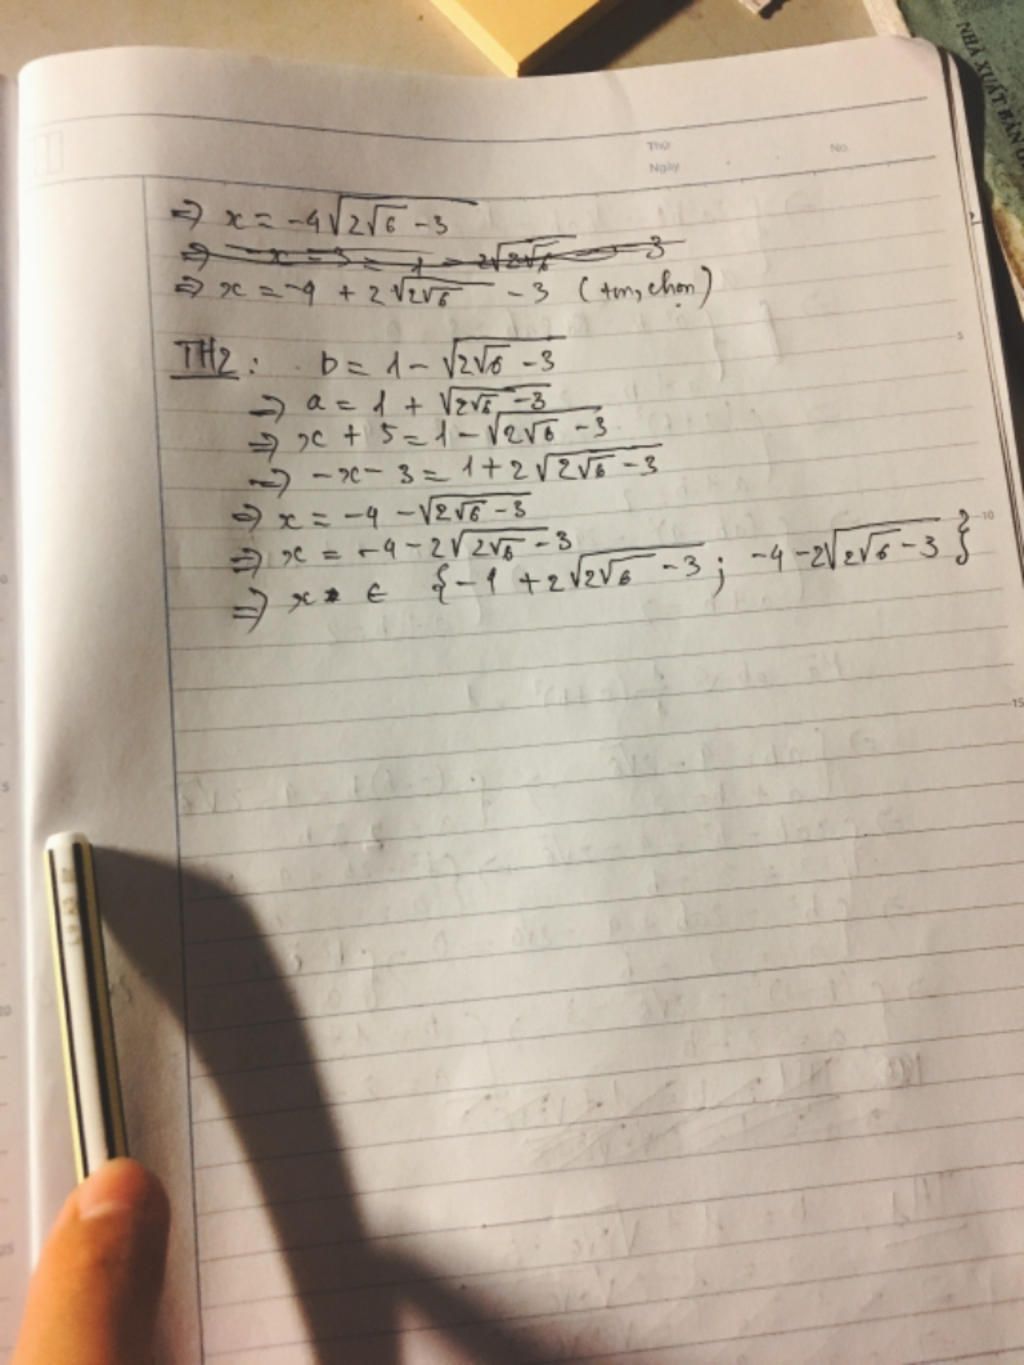 NHÀ XUẤT BẢN
Thứ
Ngày
No.
=> x = -4√(2√6 - 3)
=> x = -4 + 2√(2√6) - 3 (tm, chọn)
TH2: b = 1 - √(2√6 - 3)
=> a = 1 + √(2√6 - 3)
=> x + 5 = 1 - √(2√6 - 3)
=> -x - 3 = 1 + 2√(2√6 - 3)
=> x = -4 - √(2√6 - 3)
=> x = -4 - 2√(2√6) - 3
=> x ∈ {-1 + 2√(2√6 - 3); -4 - 2√(2√6 - 3)}
5
10
15